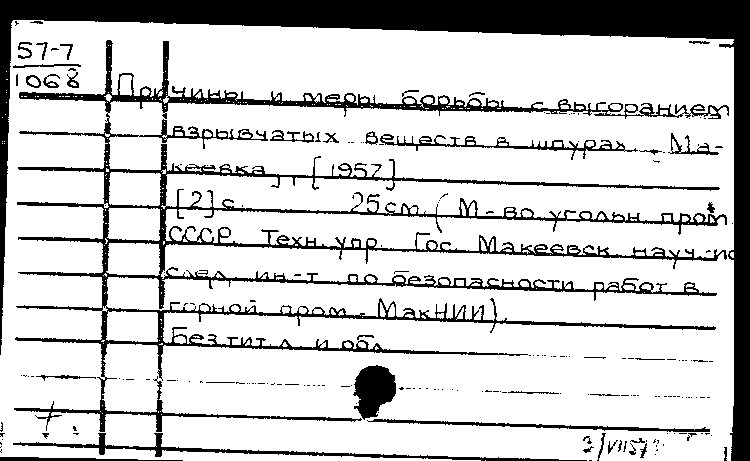 57-7
1068
Причины и меры борьбы с выгоранием
взрывчатых веществ в шпурах. Ма-
кеевка, [1957]
[2] с. 25 см. (М-во угольн. пром
СССР. Техн. упр. Гос. Макеевск. науч.-
след. ин-т по безопасности работ в
горной пром. - МакНИИ).
Без тит. л. и обл.